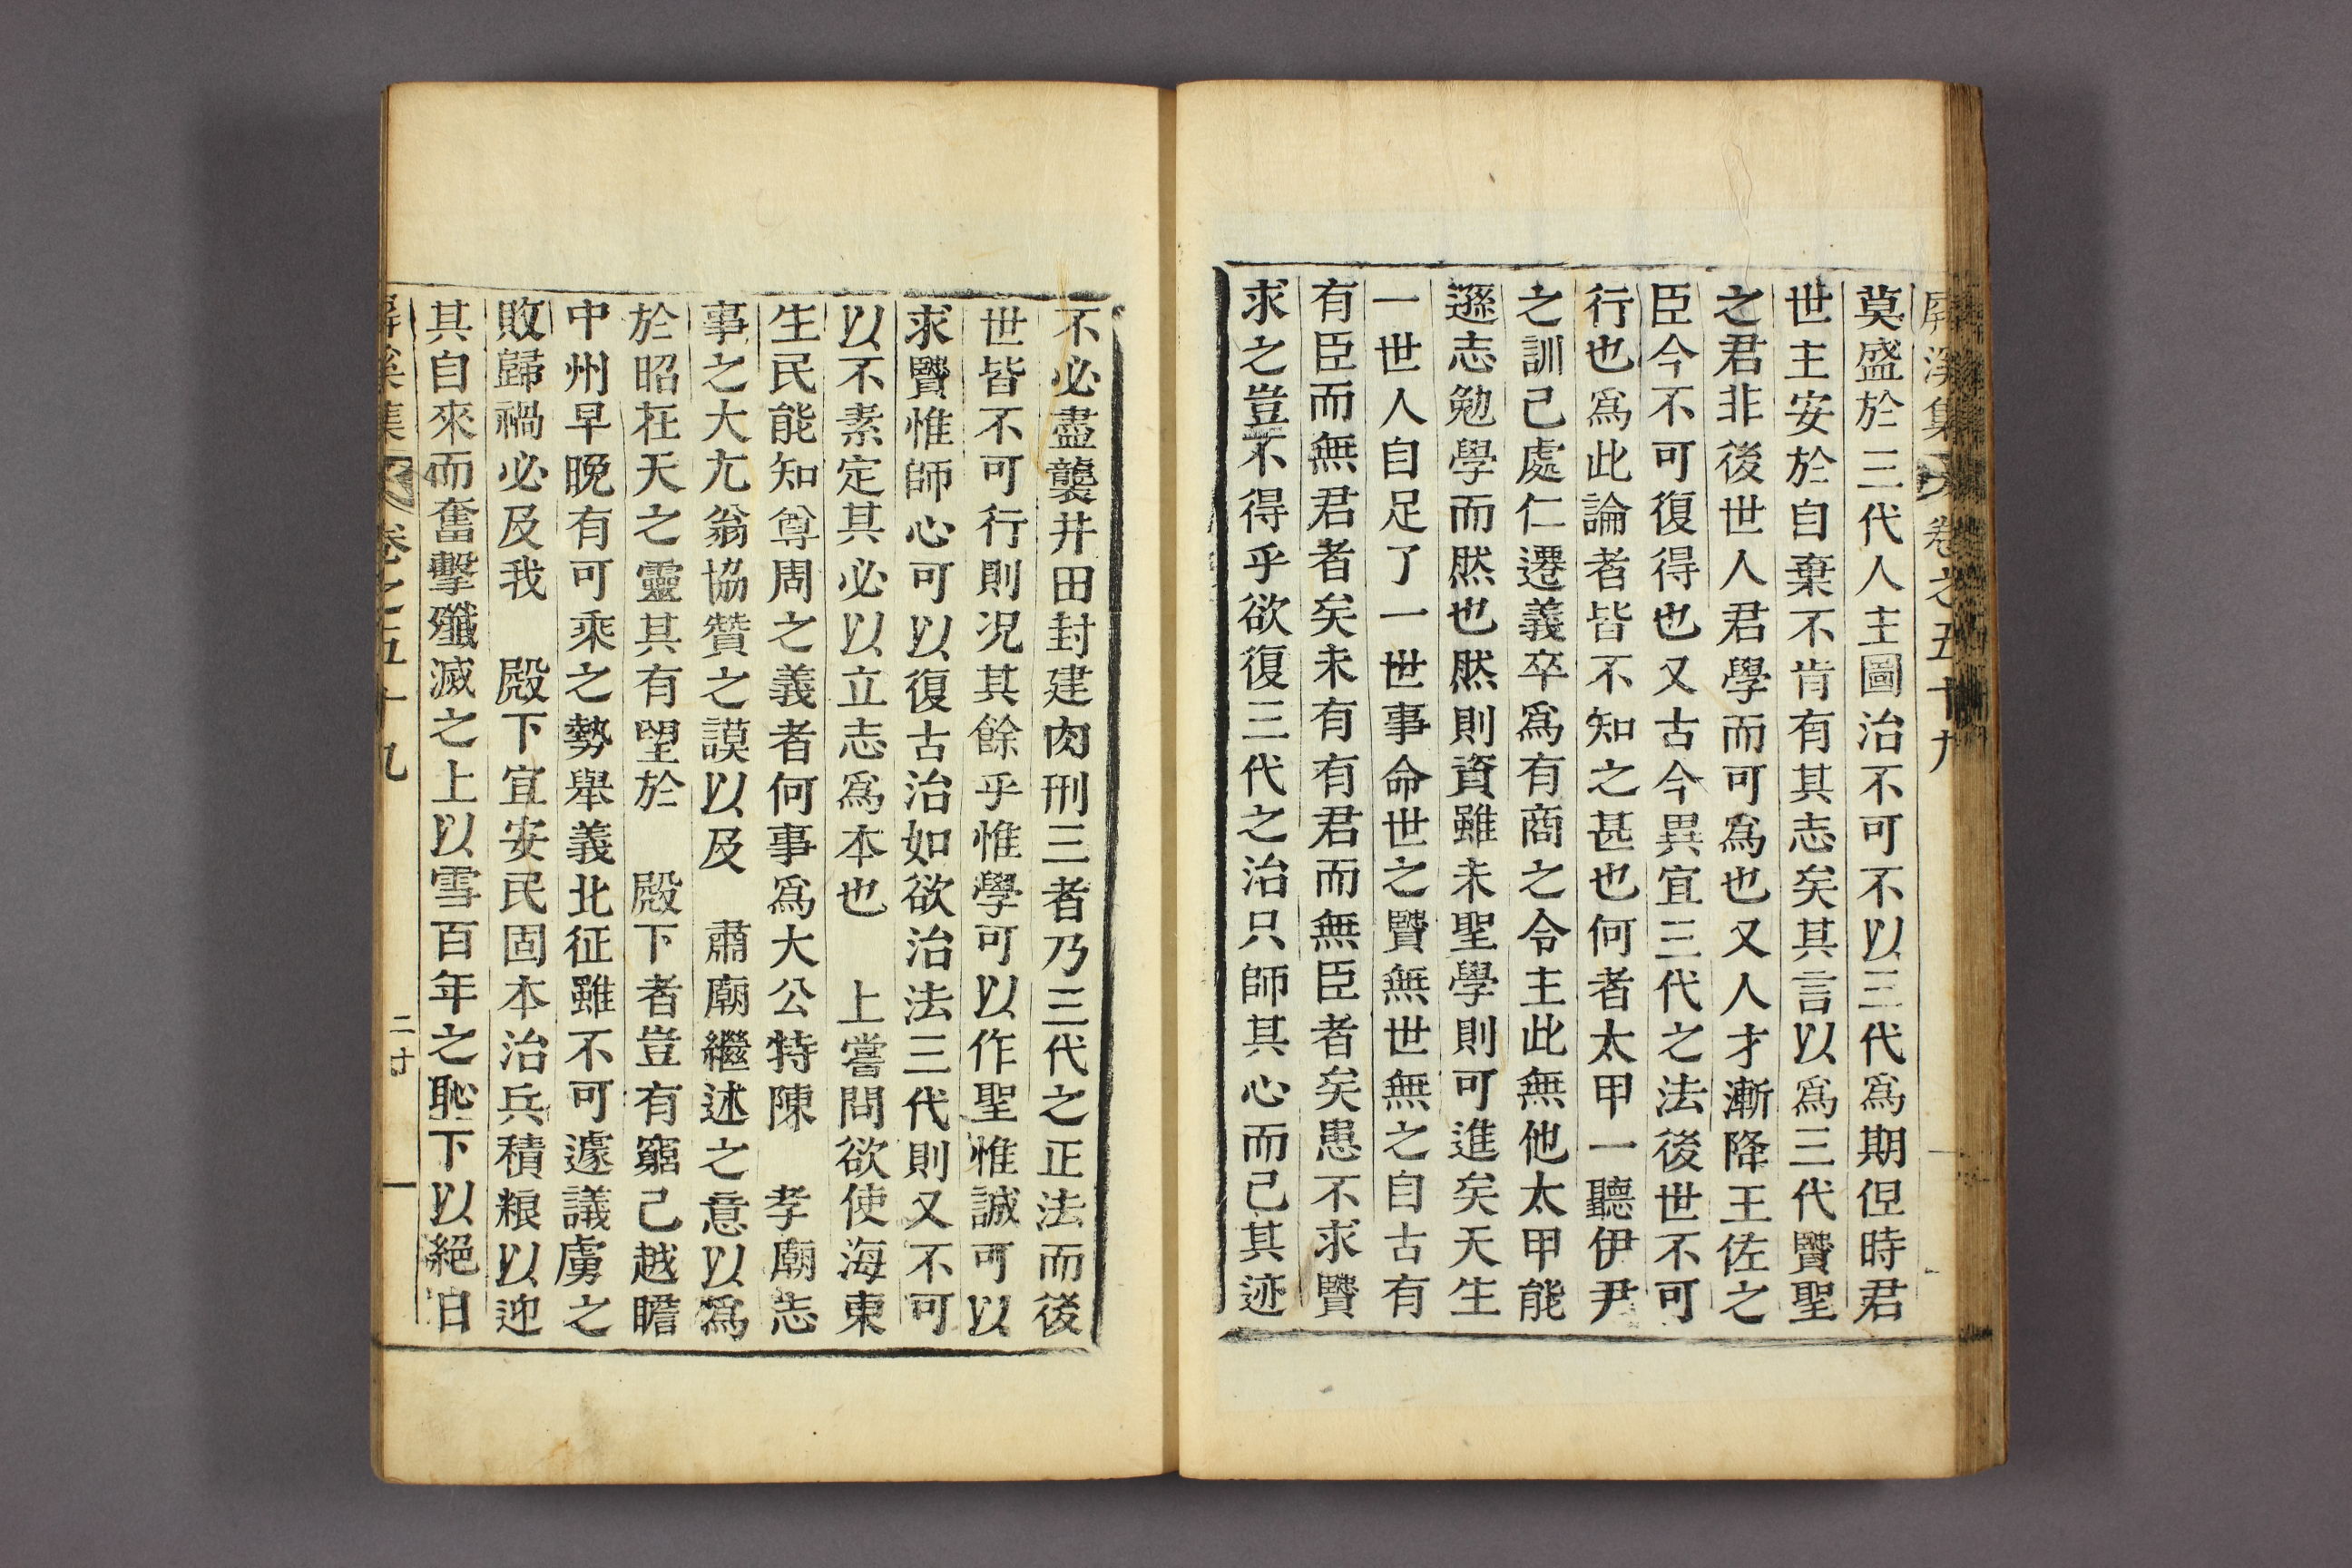 屛溪集 卷之五十九
莫盛於三代人主圖治不可不以三代爲期但時君
世主安於自棄不肯有其志矣其言以爲三代賢聖
之君非後世人君學而可爲也又人才漸降王佐之
臣今不可復得也又古今異宜三代之法後世不可
行也爲此論者皆不知之甚也何者太甲一聽伊尹
之訓己處仁遷義卒爲有商之令主此無他太甲能
遜志勉學而然也然則資雖未聖學則可進矣天生
一世人自足了一世事命世之賢無世無之自古有
有臣而無君者矣未有有君而無臣者矣患不求賢
求之豈不得乎欲復三代之治只師其心而己其迹
不必盡襲井田封建肉刑三者乃三代之正法而後
世皆不可行則况其餘乎惟學可以作聖惟誠可以
求賢惟師心可以復古治如欲治法三代則又不可
以不素定其必以立志爲本也 上嘗問欲使海東
生民能知尊周之義者何事爲大公特陳 孝廟志
事之大尤翁協贊之謨以及 肅廟繼述之意以爲
於昭在天之靈其有望於 殿下者豈有窮己越瞻
中州早晩有可乘之勢舉義北征雖不可遽議虜之
敗歸禍必及我 殿下宜安民固本治兵積粮以迎
其自來而奮擊殲滅之上以雪百年之恥下以絕日
屛溪集 卷之五十九 二十